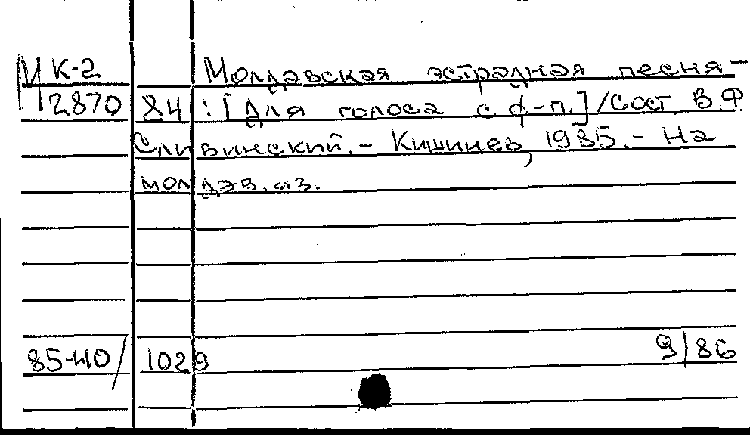 М К-2 Молдавская эстрадная песня-
12870 84 : [Для голоса с ф-п.] / Сост. В.Ф.
Сливинский. - Кишинев, 1985. - На
молдав. яз.
85-410/ 1029 9/86